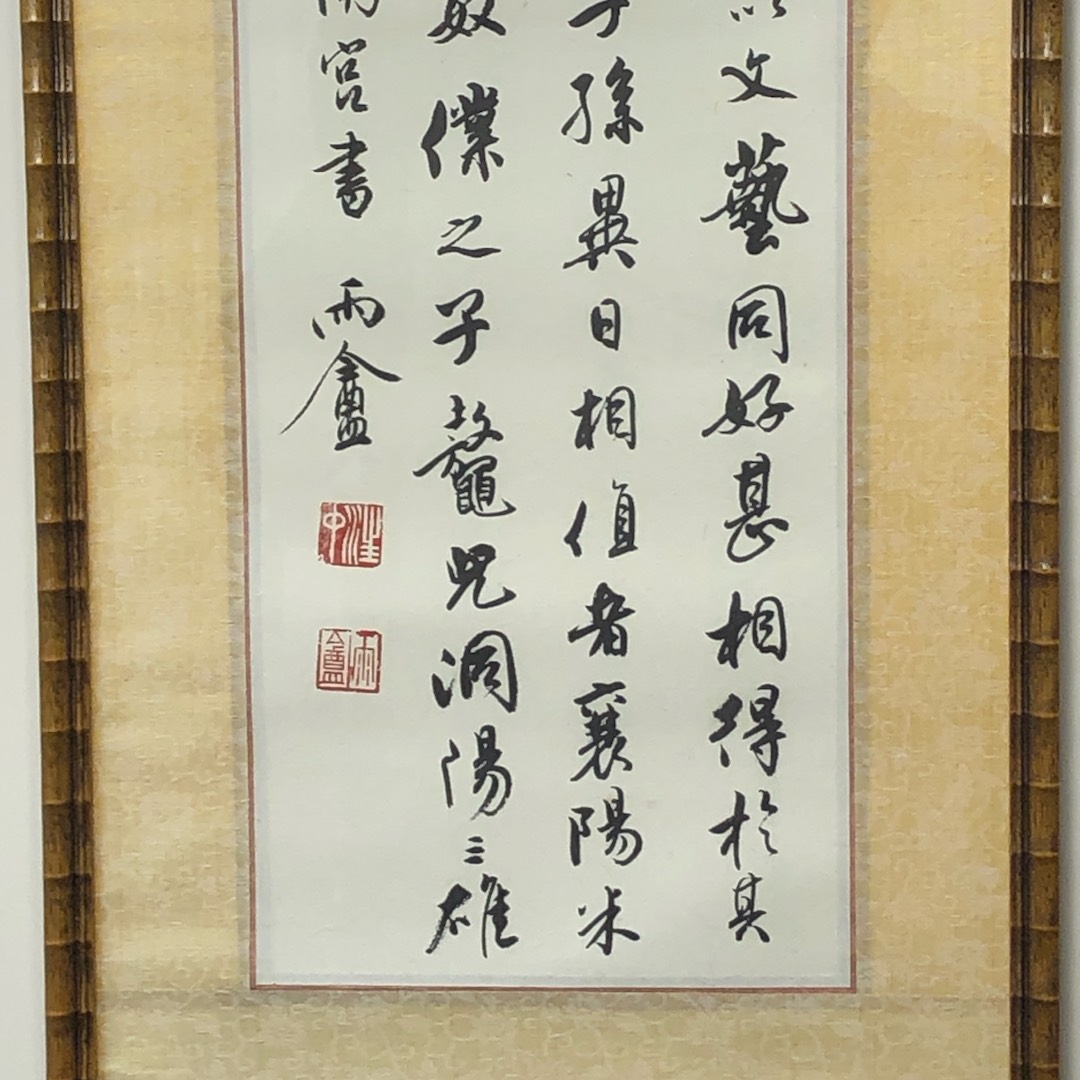 以文藝同好甚相得於其
子孫異日相值者襄陽米
僕之子鼇兒洞陽三雄
南宮書 雨盦
汪中
雨盦